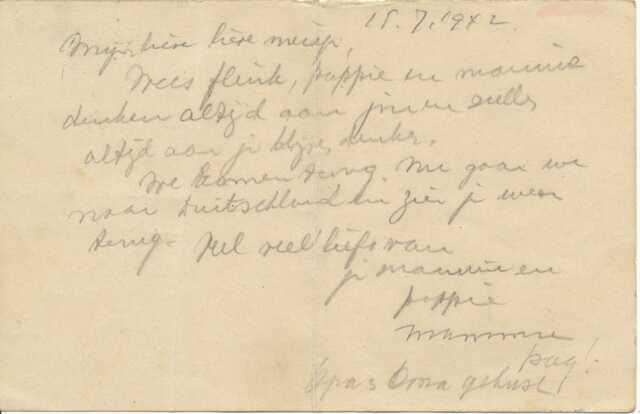 15.7.1942
Mijn lieve lieve meisje,
Wees flink, pappie en mammie
denken altijd aan jou en zullen
altijd aan je blijven denken.
We komen terug. Nu gaan we
naar Duitschland en zien je weer
terug. Veel veel liefs van
je mammie en
pappie
mammie
Dag!
Opa & Oma gekust!